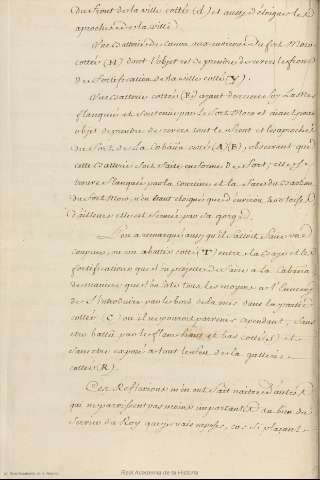 du front de la ville cottée (d) et aussy d'éloigner les
aproches de la ville.
Une batterie de canon aux environs du fort Moro
cottée (N) dont l'objet est de prendre de revers le front
de fortification de la ville cotté (Y).
Une batterie cottée (P) ayant derriere soy La
flanquée et soutenue par le fort Moro et aiant pour
objet de prendre de revers tout le front et les aproches
du fort de La Cabaña cotté (A) (B), observant que
cette batterie soit faite en forme de fort; elle se
trouve flanquée par la courtine et la face du bastion
du fort Moro, n'en étant éloignée que d'environ toises
d'ailleurs elle est fermée par sa gorge.
L'on a remarqué aussy qu'il falloit faire une
coupure, ou un abattis cotté (T) entre la et les
fortifications que j'ay projetté de faire a La Cabaña
de maniere que l'on ôte tous les moyens a l'ennemy
de s'introduire par le bord de la mer dans la partie
cottée (C) ou il ne pourroit parvenir cependant, sans
être battu par le flanc haut et bas cotté (S) et
sans être exposé a tout le feu de la gallerie
cottée (R).
Ces Reflexions m'en ont fait naitre d'autres
qui ne paroissent pas moins importantes au bien du
Service du Roy que je vais exposer, car si
Real Academia de la Historia